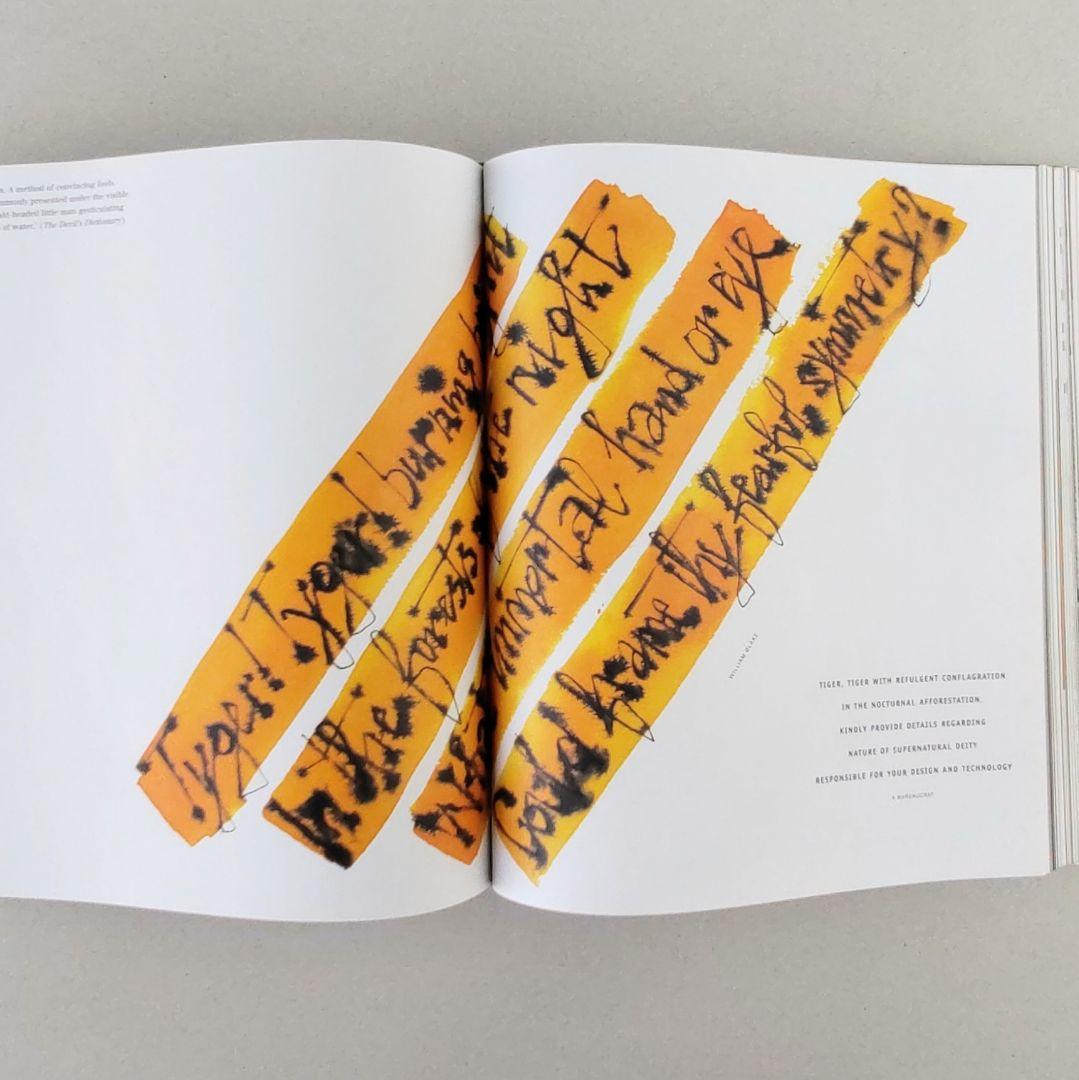 A method of convincing fools.
presented under the visible
bald-headed little man gesticulating
of water.' (The Devil's Dictionary)
Tyger! Tyger! burning
In the forests night
immortal hand or eye
Could frame thy fearful symmetry?
WILLIAM BLAKE
TIGER, TIGER WITH REFULGENT CONFLAGRATION
IN THE NOCTURNAL AFFORESTATION.
KINDLY PROVIDE DETAILS REGARDING
NATURE OF SUPERNATURAL DEITY
RESPONSIBLE FOR YOUR DESIGN AND TECHNOLOGY
A BUREAUCRAT